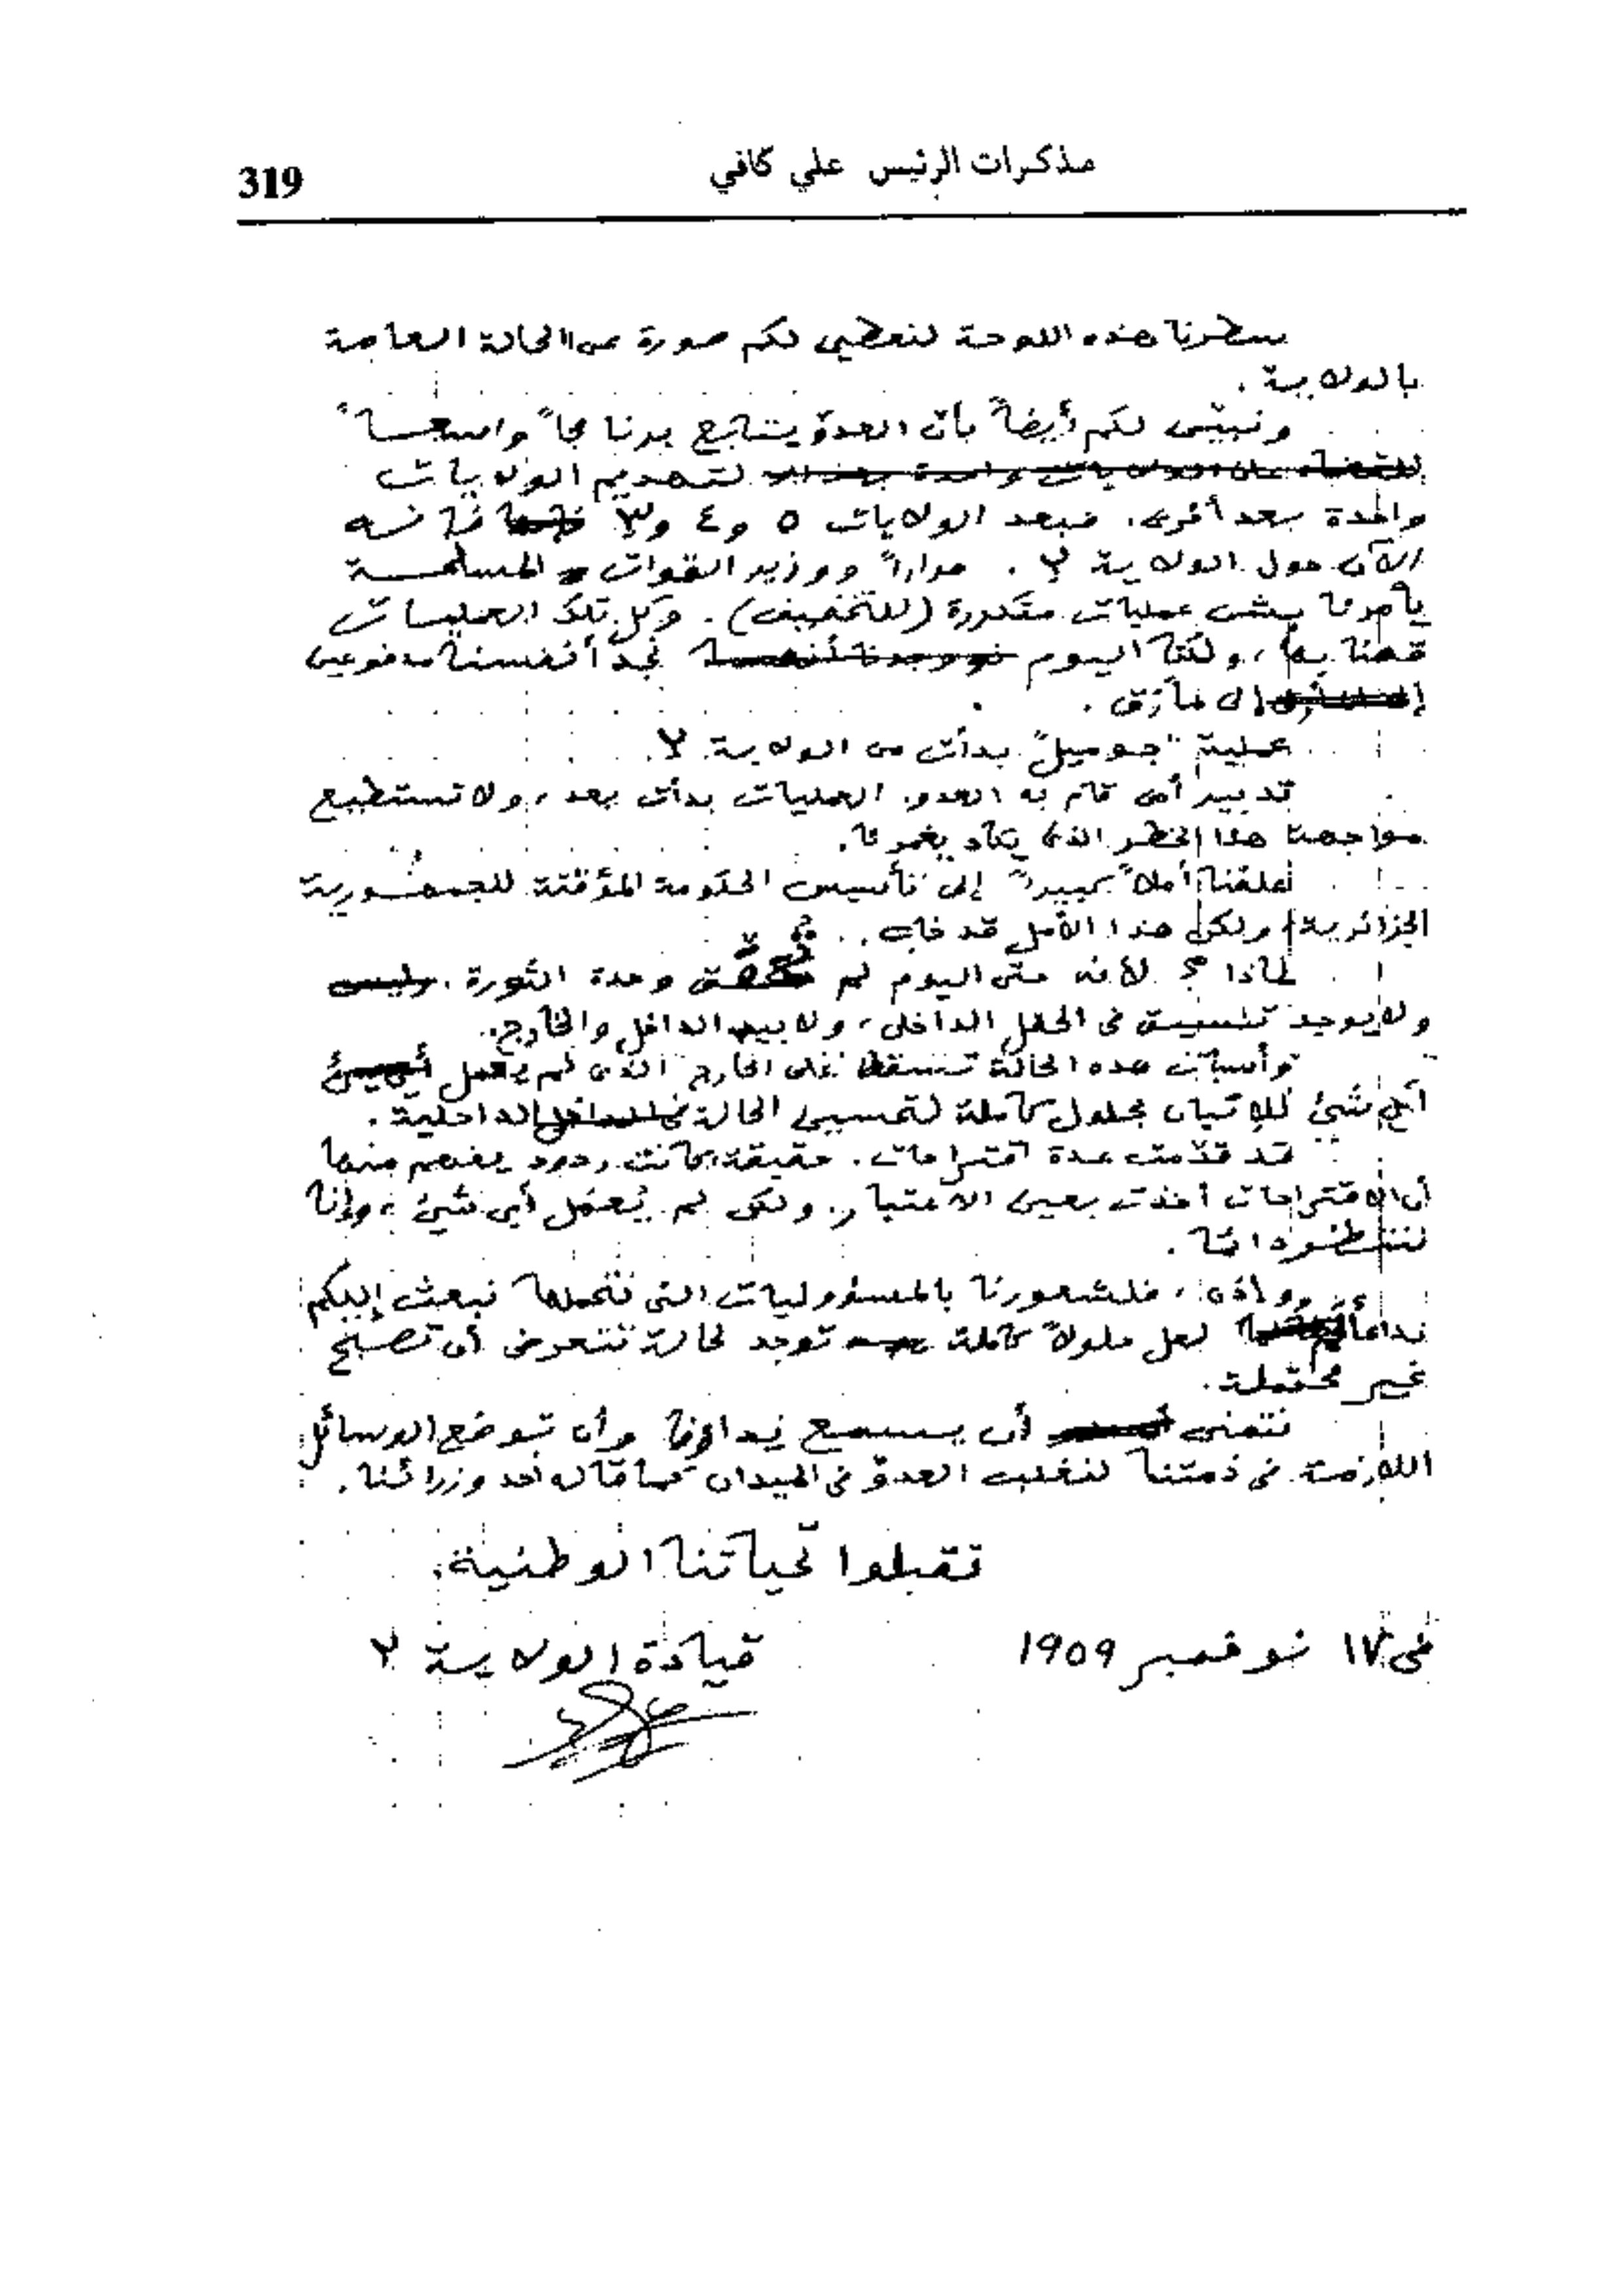 مذكرات الرئيس علي كافي
319
سطرنا هذه اللوحة لنعطي لكم صورة عن الحالة العامة
بالولاية .
ونبيّن لكم أيضاً بأن العدوّ يتتابع برنامجاً واسعــاً
للقضاء على الولايات واحدة بعد لتهديم الولايات
واحدة بعد أخرى. فبعد الولايات ٥ و ٤ و ٣ فإنه
الآن حول الولاية ٢ . مراراً ووزير القوات المسلحــة
يأمرنا بشن عمليات متكررة (للتخفيف). وكل تلك العمليات
قمنا بها، ولكنّا اليوم نجد أنفسنا مدفوعين
إلى مأزق .
عملية "جوميل" بدأت من الولاية ٢.
تدبير أمن قام به العدو. العمليات بدأت بعد، ولا تستطيع
مواجهتنا هذا الخطر الذي يكاد يغمرنا.
لعلقنا أملاً كبيراً إلى تأسيس الحكومة المؤقتة للجمهــورية
الجزائرية ولكن هذا الأمل قد خاب ..
لماذا ؟ لأنه حتى اليوم لم تحقّق وحدة الثورة . وليس
ولا يوجد تنسيق في الحقل الداخلي، ولا بين الداخل والخارج.
وأسباب هذه الحالة تسقط على الخارج الذي لم يعمل
أي شئ للإتيان بحلول كاملة لتحسين الحالة الداخلية .
قد قدّمت عدة اقتراحات. حقيقة كانت ردود يفهم منها
أن الاقتراحات أخذت بعين الاعتبار. ولكن لم يُعمَل أي شئ ، وإنا
لننتظر دائما .
وإذن ، فلشعورنا بالمسؤوليات التي نتحملها نبعث إليكم
نداءً لعل حلولاً كاملة توجد لحالة تتعرض أن تصبح
غير محتملة .
نتمنى أن يسمع نداؤنا وأن توضع الوسائل
اللازمة في ذمتنا لنغلب العدوّ في الميدان كما قاله أحد وزرائنا .
تقبلوا تحياتنا الوطنية.
في ١٧ نوفمبر ١٩٥٩
قيادة الولاية ٢